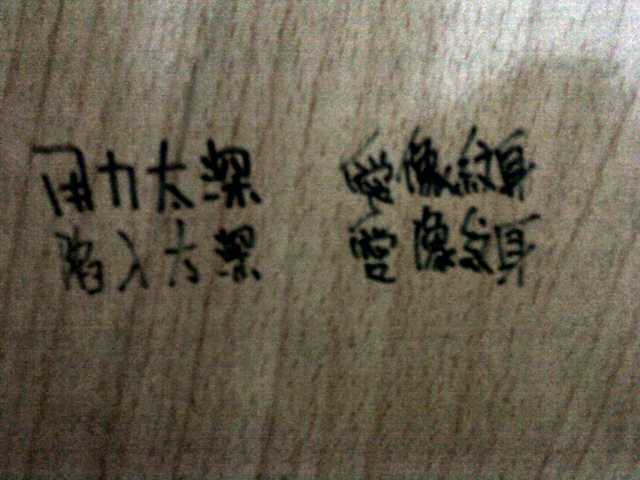 用力太深 愛像紋身
陷入太深 像紋身